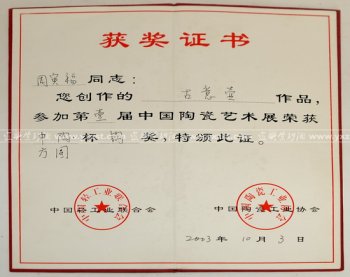 获奖证书
周寅福 同志：
您创作的 古意壶 作品，
参加第壹届中国陶瓷艺术展荣获
中陶杯铜奖，特颁此证。
方圆
中国轻工业联合会
中国陶瓷工业协会
2003年10月3日